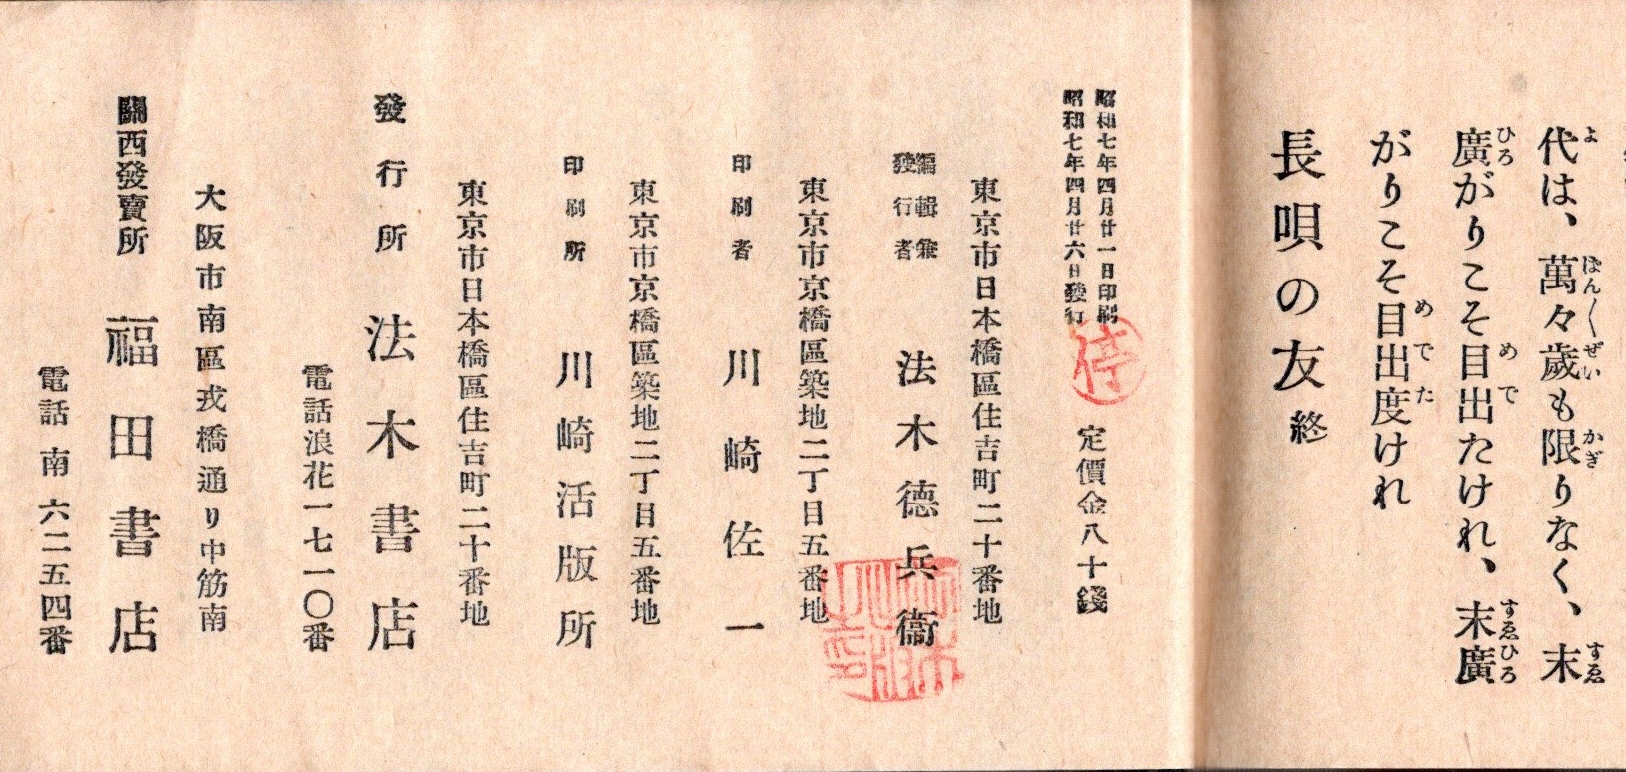 代は、萬々歳も限りなく、末
廣がりこそ目出たけれ、末廣
がりこそ目出度けれ
長唄の友 終
昭和七年四月廿一日印刷
昭和七年四月廿六日發行
停
定價金八十錢
東京市日本橋區住吉町二十番地
編輯兼
發行者
法木德兵衞
東京市京橋區築地二丁目五番地
印刷者 川崎佐一
東京市京橋區築地二丁目五番地
印刷所 川崎活版所
東京市日本橋區住吉町二十番地
發行所 法木書店
電話浪花一七一〇番
大阪市南區戎橋通り中筋南
關西發賣所 福田書店
電話南六二五四番